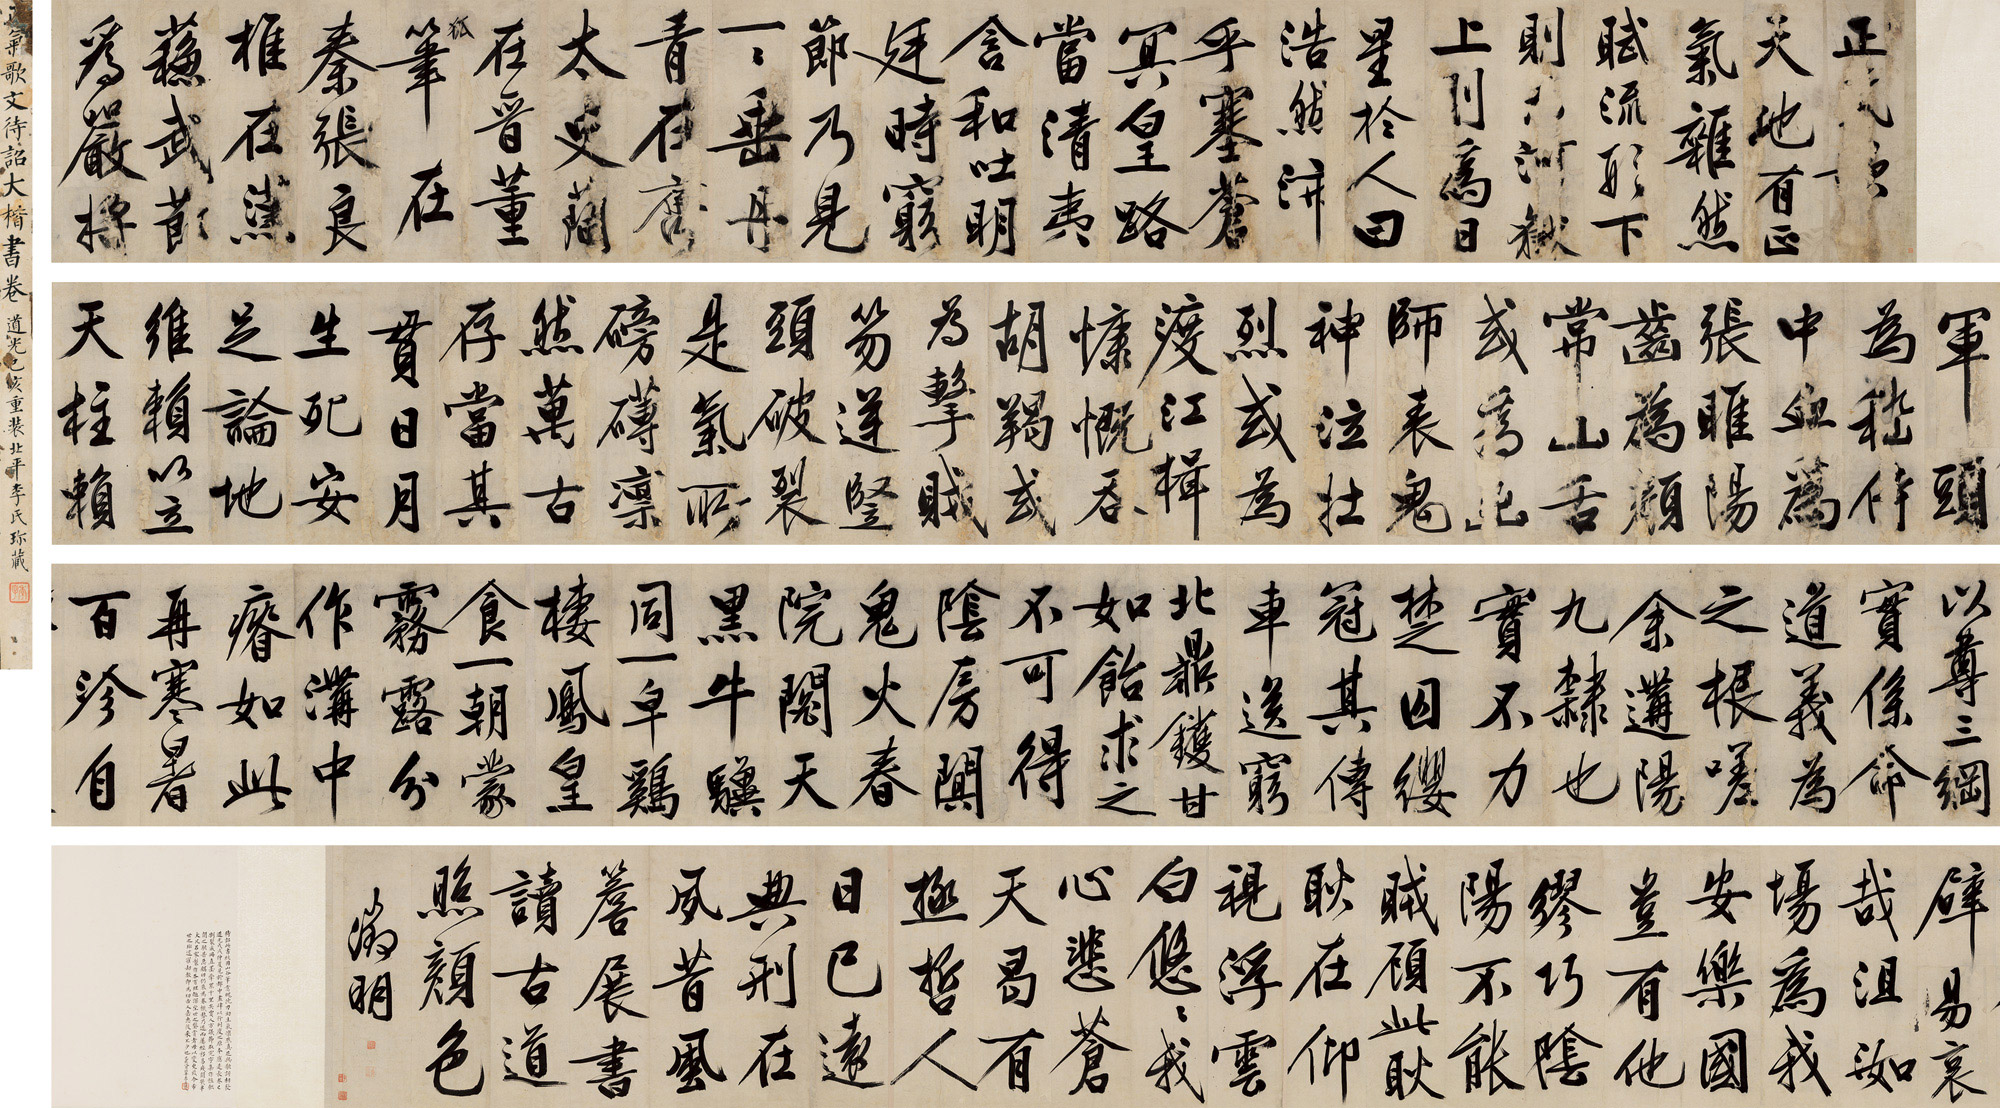 氣歌文待詔大楷書卷 道光己亥重裝北平李氏珍藏
正氣歌
天地有正
氣雜然
賦流形下
則為河嶽
上則為日
星於人曰
浩然沛
乎塞蒼
冥皇路
當清夷
含和吐明
廷時窮
節乃見
一〻垂丹
青在
太史簡
在晉董
狐筆在
秦張良
椎在漢
蘇武節
為嚴將
軍頭
為嵇侍
中血為
張睢陽
齒為顏
常山舌
或為出
師表鬼
神泣壯
烈或為
渡江楫
慷慨吞
胡羯或
為擊賊
笏逆豎
頭破裂
是氣所
磅礡凜
然萬古
存當其
貫日月
生死安
足論地
維賴以立
天柱賴
以尊三綱
實係命
道義為
之根嗟
余遘陽
九隸也
實不力
楚囚纓
冠其傳
車送窮
北鼎鑊甘
如飴求之
不可得
陰房闃
鬼火春
院閟天
黑牛驥
同一皁鷄
棲鳳皇
食一朝蒙
霧露分
作溝中
瘠如此
再寒暑
百沴自
辟易哀
哉沮洳
場為我
安樂國
豈有他
繆巧陰
陽不能
賊顧此耿
耿在仰
視浮雲
白悠〻我
心悲蒼
天曷有
極哲人
日已遠
典刑在
夙昔風
簷展書
讀古道
照顏色
徵明